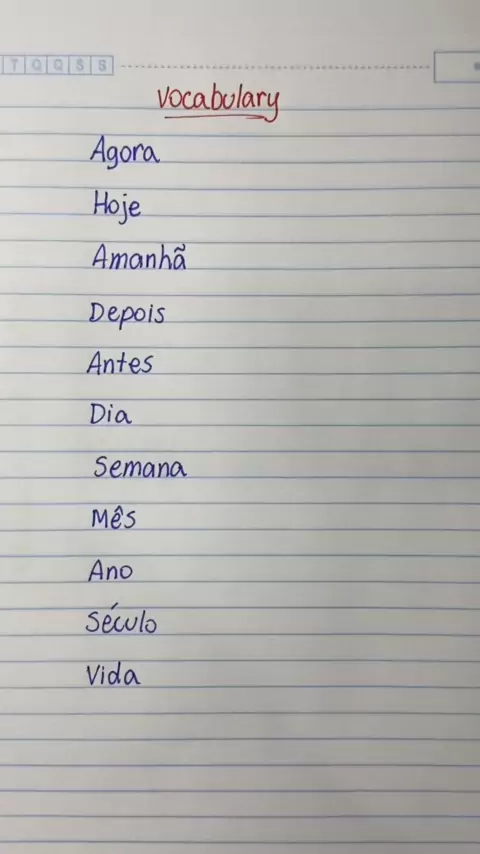 T Q Q S S
Vocabulary
Agora
Hoje
Amanhã
Depois
Antes
Dia
Semana
Mês
Ano
Século
Vida